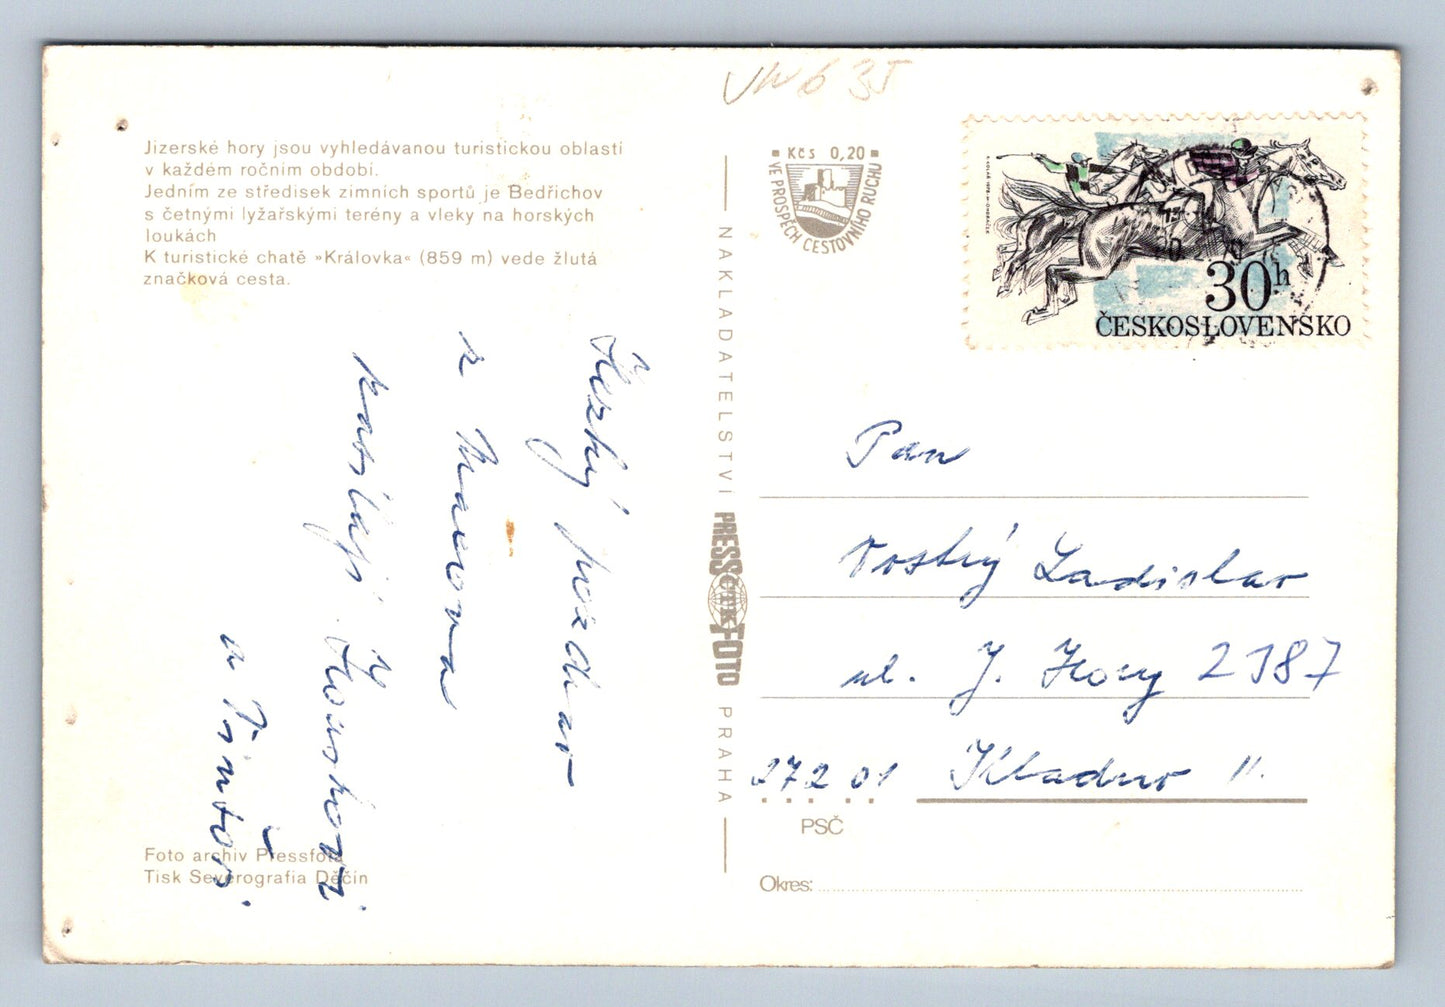 VN 635
Jizerské hory jsou vyhledávanou turistickou oblastí
v každém ročním období.
Jedním ze středisek zimních sportů je Bedřichov
s četnými lyžařskými terény a vleky na horských
loukách
K turistické chatě »Královka« (859 m) vede žlutá
značková cesta.
Hezký pozdrav
z
zasílají
a
Foto archiv Pressfoto
Tisk Severografia Děčín
NAKLADATELSTVÍ PRESSFOTO PRAHA
ČTK
Kčs 0,20
VE PROSPĚCH CESTOVNÍHO RUCHU
30h
ČESKOSLOVENSKO
Pan
Vostrý Ladislav
ul. J. Hory 2387
272 01 Kladno II.
PSČ
Okres: